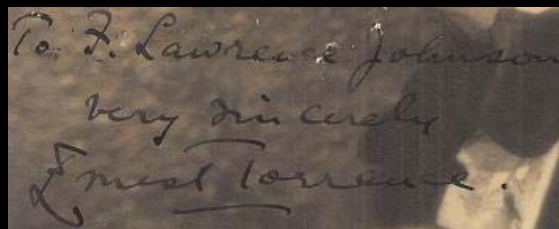 To F. Lawrence Johnson
very sincerely
Ernest Torrence.